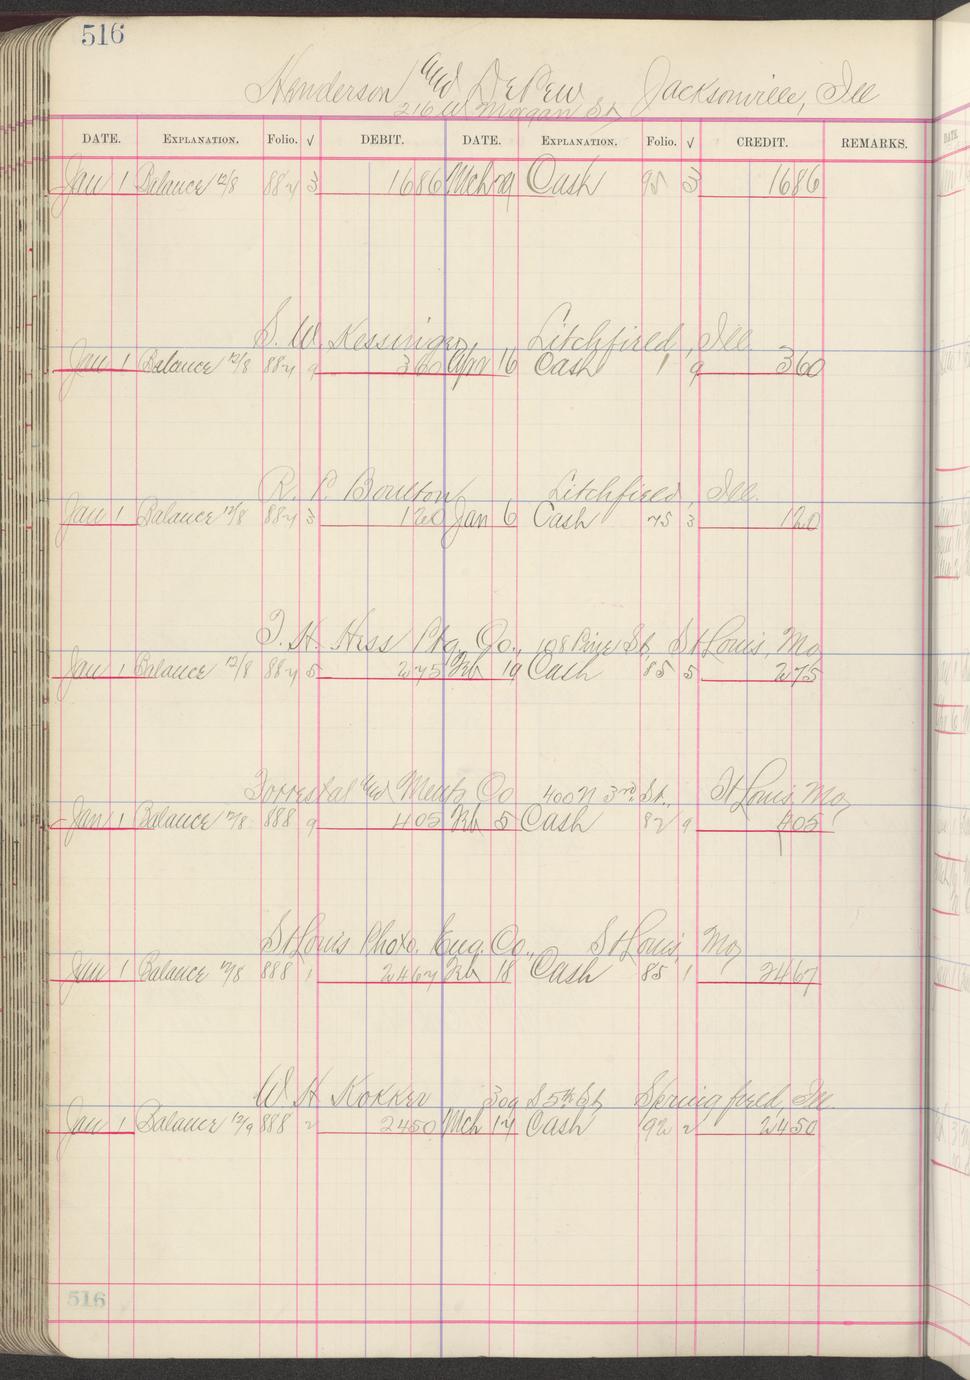 516
Henderson and DePew Jacksonville, Ill
216 W Morgan St
DATE. EXPLANATION. Folio. √ DEBIT. DATE. EXPLANATION. Folio. √ CREDIT. REMARKS.
Jan 1 Balance 12/8 887 3 1686 Mch 29 Cash 95 3 1686
S. W. Kessinger Litchfield, Ill.
Jan 1 Balance 12/8 887 9 360 Apr 16 Cash 1 9 360
R. P. Boulton Litchfield, Ill.
Jan 1 Balance 12/8 887 3 120 Jan 6 Cash 75 3 120
T. H. Hess Ptg. Co., 108 Pine St, St Louis, Mo
Jan 1 Balance 12/8 887 5 275 Feb 19 Cash 85 5 275
and Co 400 N 3rd St., St Louis, Mo,
Jan 1 Balance 12/8 888 9 405 Feb 5 Cash 82 9 405
St Louis Photo. Eng. Co., St Louis, Mo,
Jan 1 Balance 12/8 888 1 2467 Feb 18 Cash 85 1 2467
W H Kokker 309 S 5th St Springfield, Ill.
Jan 1 Balance 12/9 888 2 2450 Mch 17 Cash 92 2 2450
516